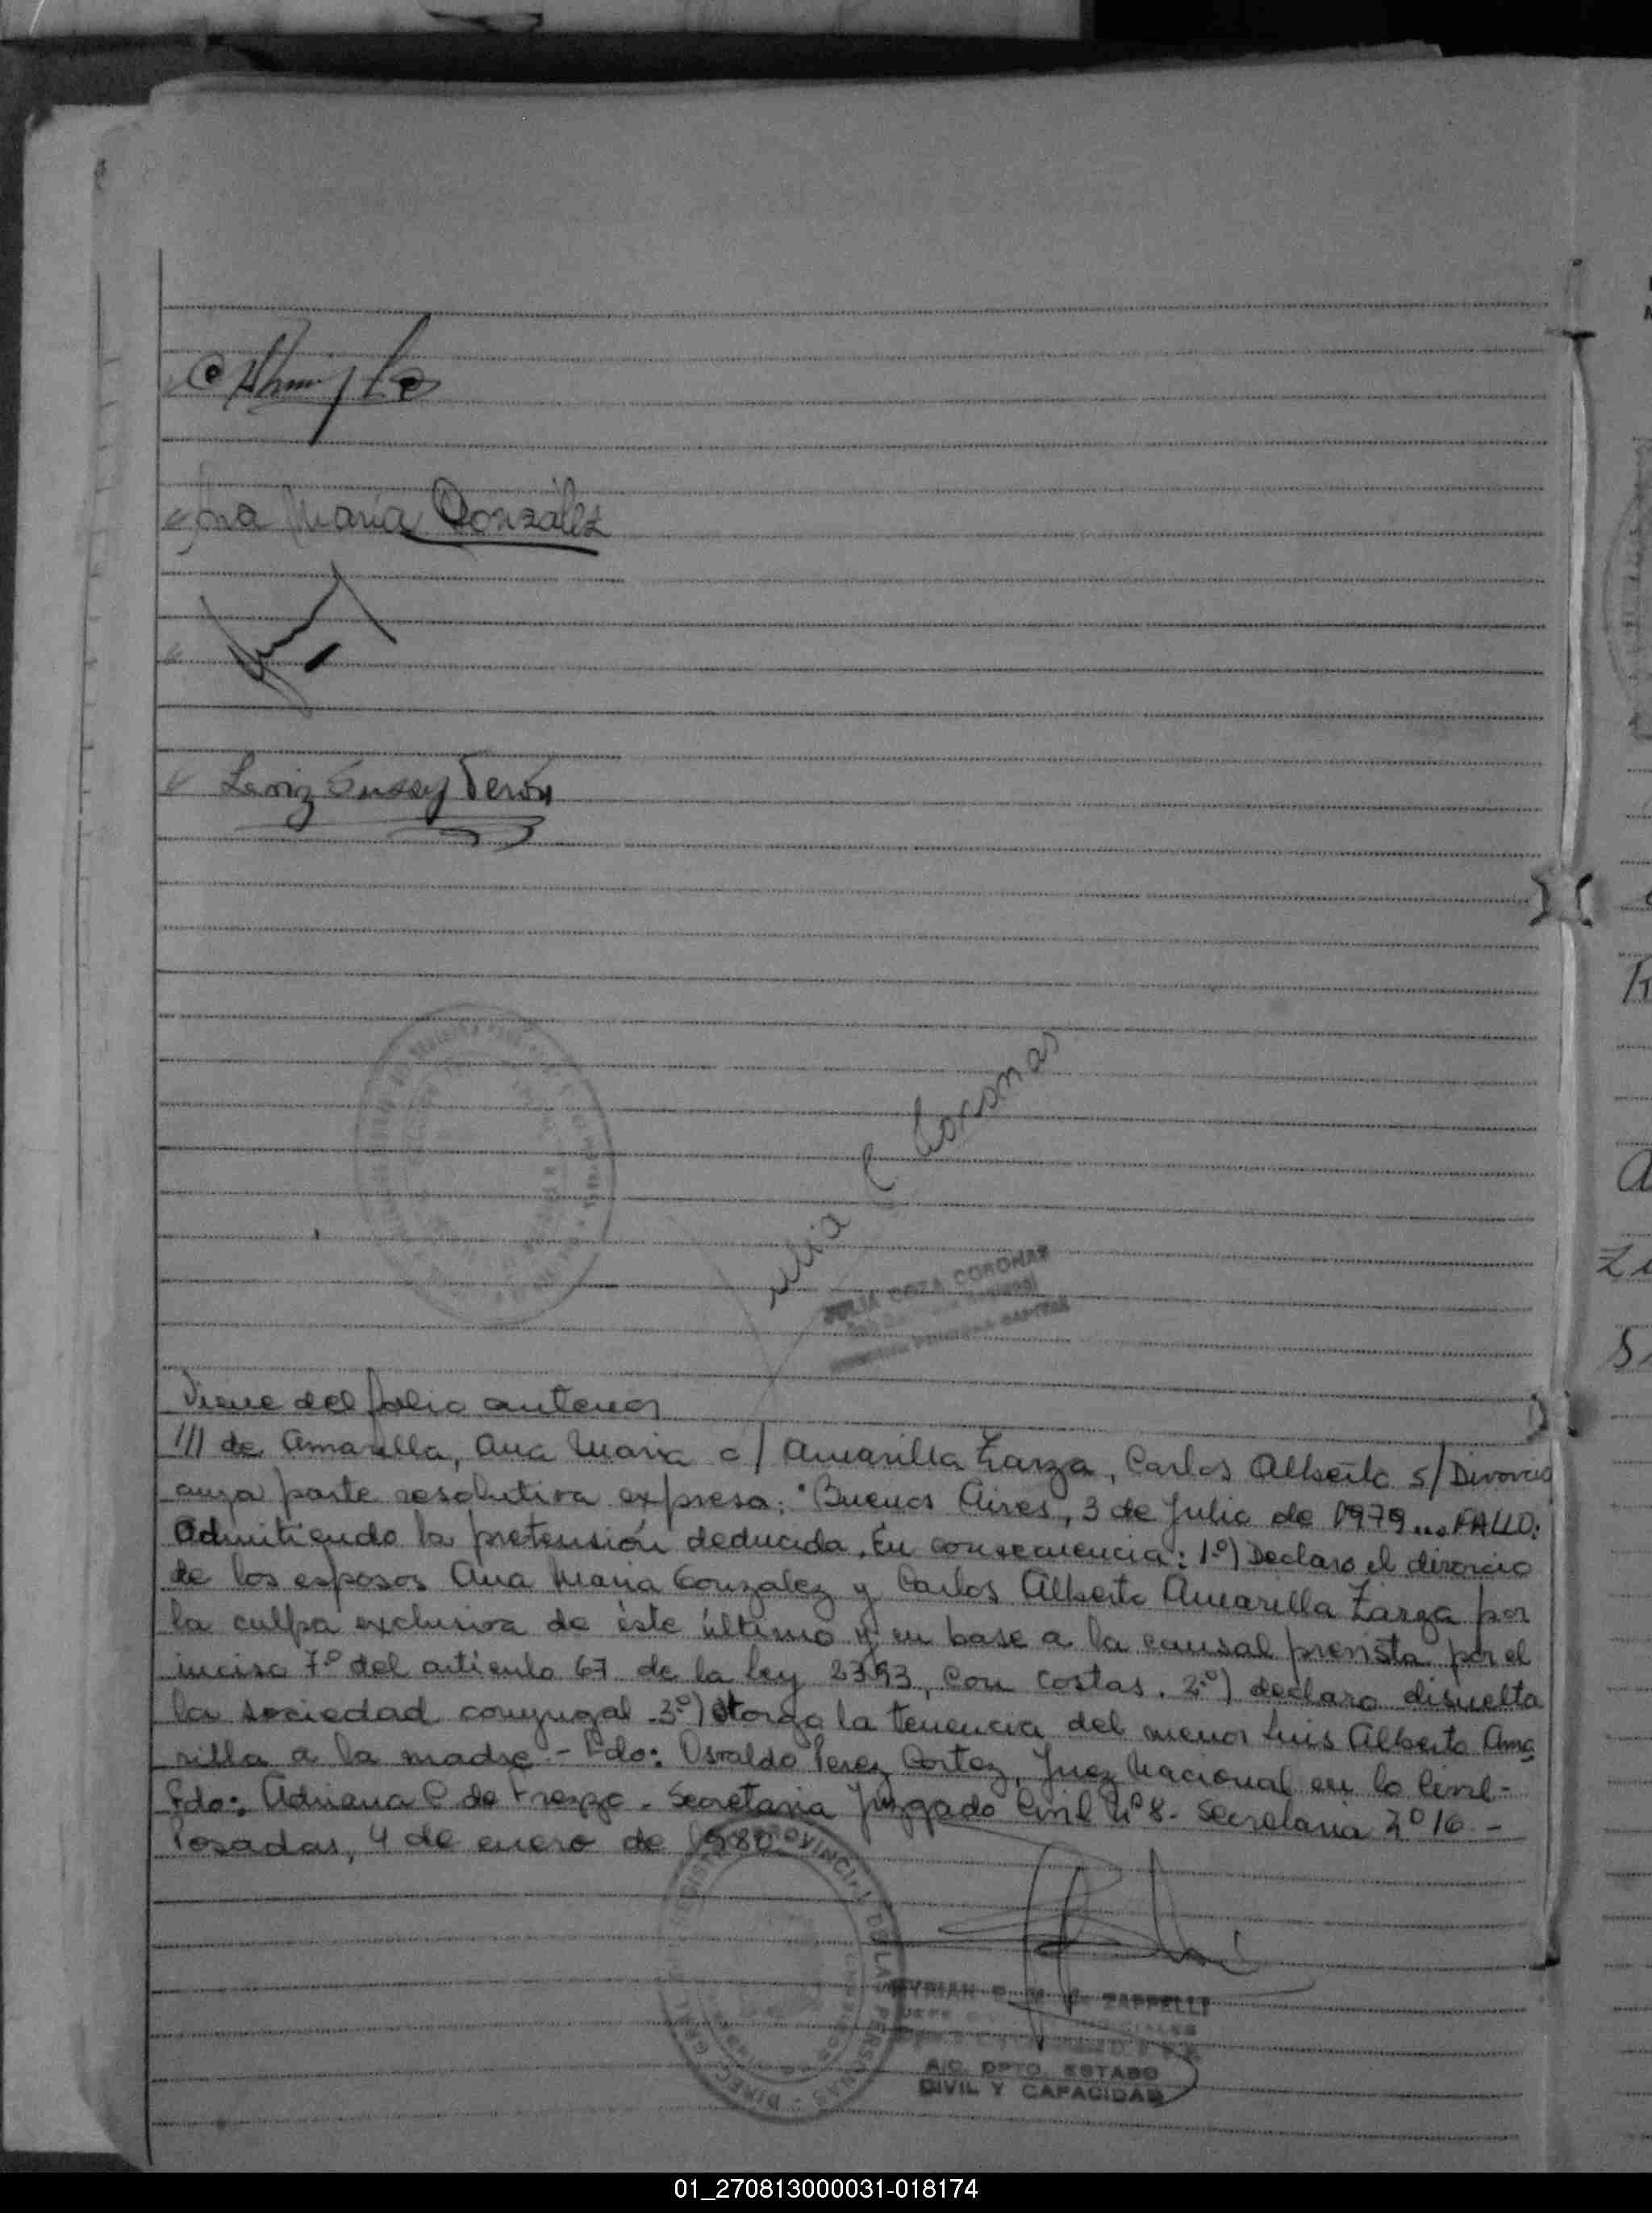 Ana María González
Viene del folio anterior
/// de Amarilla, Ana Maria c/ Amarilla Zarza, Carlos Alberto s/ Divorcio
cuya parte resolutiva expresa: "Buenos Aires, 3 de Julio de 1979... FALLO:
Admitiendo la pretensión deducida. En consecuencia: 1º) Declaro el divorcio
de los esposos Ana Maria Gonzalez y Carlos Alberto Amarilla Zarza por
la culpa exclusiva de éste último y en base a la causal prevista por el
inciso 7º del artículo 67 de la ley 2393, con costas. 2º) declaro disuelta
la sociedad conyugal. 3º) Otorgo la tenencia del menor Luis Alberto Ama
rilla a la madre.- Fdo: Osvaldo Perez Cortez, Juez Nacional en lo Civil-
Fdo: Adriana C de - Secretaria Juzgado Civil Nº 8- Secretaria Nº 16 -
Posadas, 4 de enero de 1980
Julia C Coronas
JULIA CORONAS
CAPITAL
PROVINCIAL DE LAS PERSONAS
ZAPPELLI
A/C. DPTO. ESTADO
CIVIL Y CAPACIDAD
01_270813000031-018174